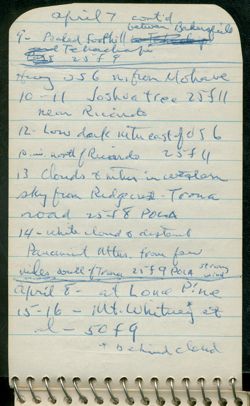 april 7 cont'd
between Bakersfield
9- Peaked foothill
and Tehachapi
25 f 9
056 mi from Mohave
10-11 Joshua tree 25 f 11
near Ricardo
12- Low dark hills east of 056
10 mi. north of Ricardo 25 f 11
13 Clouds & in western
sky from Ridgecrest - Trona
road 25 f 8 Pola
14- white cloud & distant
Panamint Mtns. from few
miles south of Trona 25 f 9 Pola strong wind
april 8- at Lone Pine
15-16 - Mt. Whitney at
50 f 9
+ behind cloud